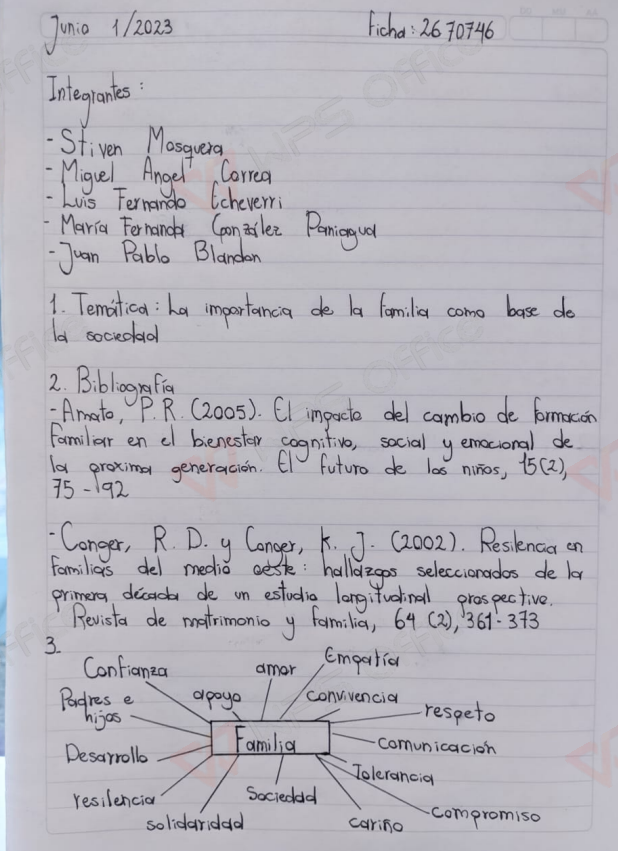 Junio 1/2023 Ficha: 2670746
Integrantes:
- Stiven Mosquera
- Miguel Angel Correa
- Luis Fernando Echeverri
- María Fernanda González Paniagua
- Juan Pablo Blandon
1. Temática: La importancia de la familia como base de
la sociedad
2. Bibliografía
- Amato, P.R. (2005). El impacto del cambio de formación
Familiar en el bienestar cognitivo, social y emocional de
la proxima generación. El futuro de los niños, 15(2),
75-92
- Conger, R. D. y Conger, K. J. (2002). Resilencia en
Familias del medio oeste: hallazgos seleccionados de la
primera década de un estudio longitudinal prospective.
Revista de matrimonio y familia, 64 (2), 361-373
3.
Confianza amor Empatía
Padres e apoyo convivencia
hijos respeto
Familia comunicación
Desarrollo Tolerancia
resilencia Sociedad compromiso
solidaridad cariño
WPS Office